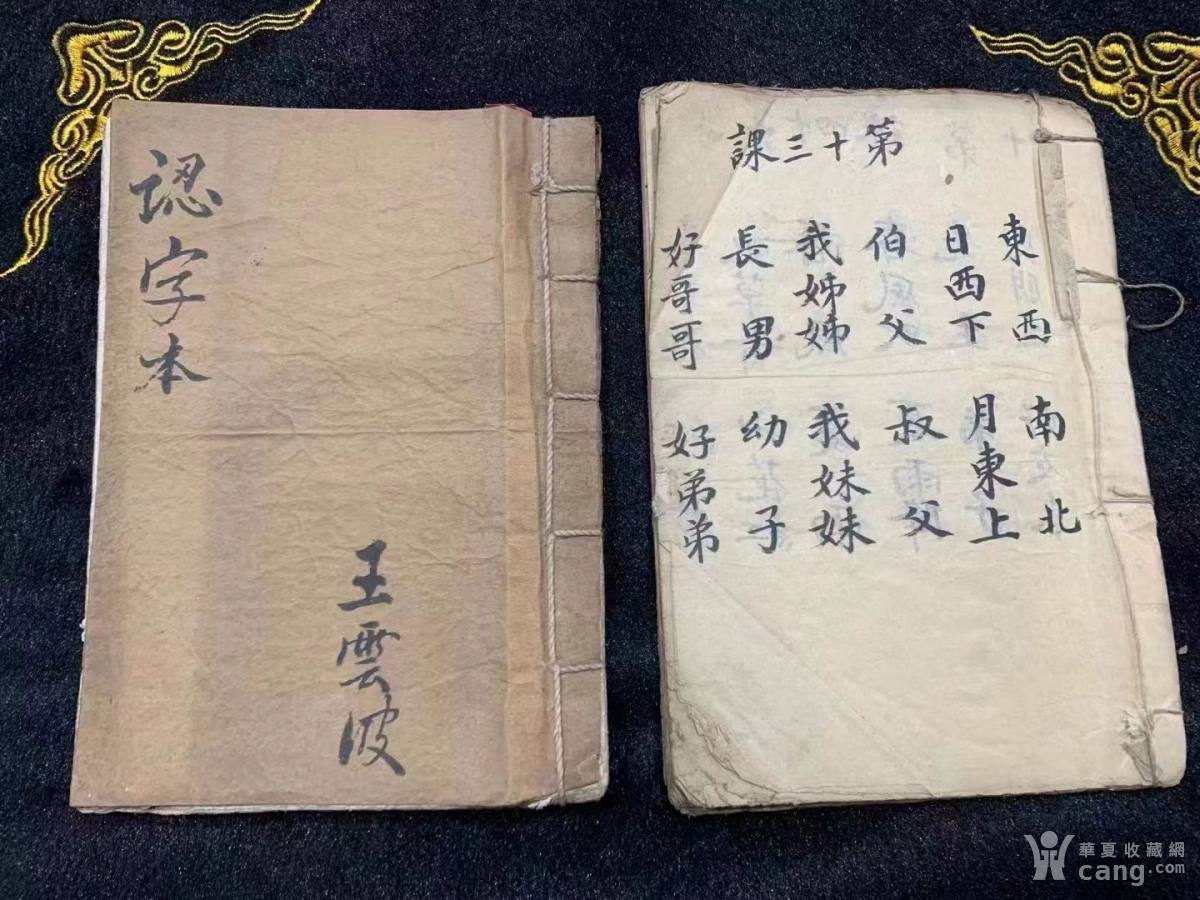 認字本
王雲波
第十三課
東西
南北
日西下
月東上
伯父
叔父
我姊姊
我妹妹
長男
幼子
好哥哥
好弟弟
華夏收藏網
cang.com